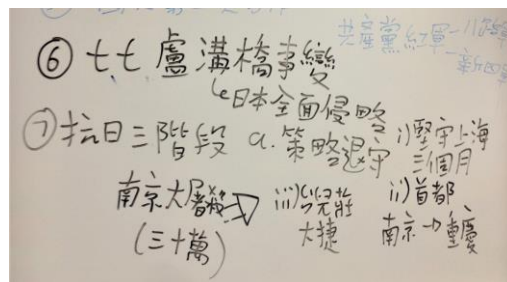 共產黨紅軍→八路軍
新四軍
⑥ 七七 盧溝橋事變
↳日本全面侵略
⑦ 抗日三階段 a. 策略退守 i) 堅守上海
三個月
南京大屠殺 iii) 台兒莊 ii) 首都
(三十萬) 大捷 南京→重慶